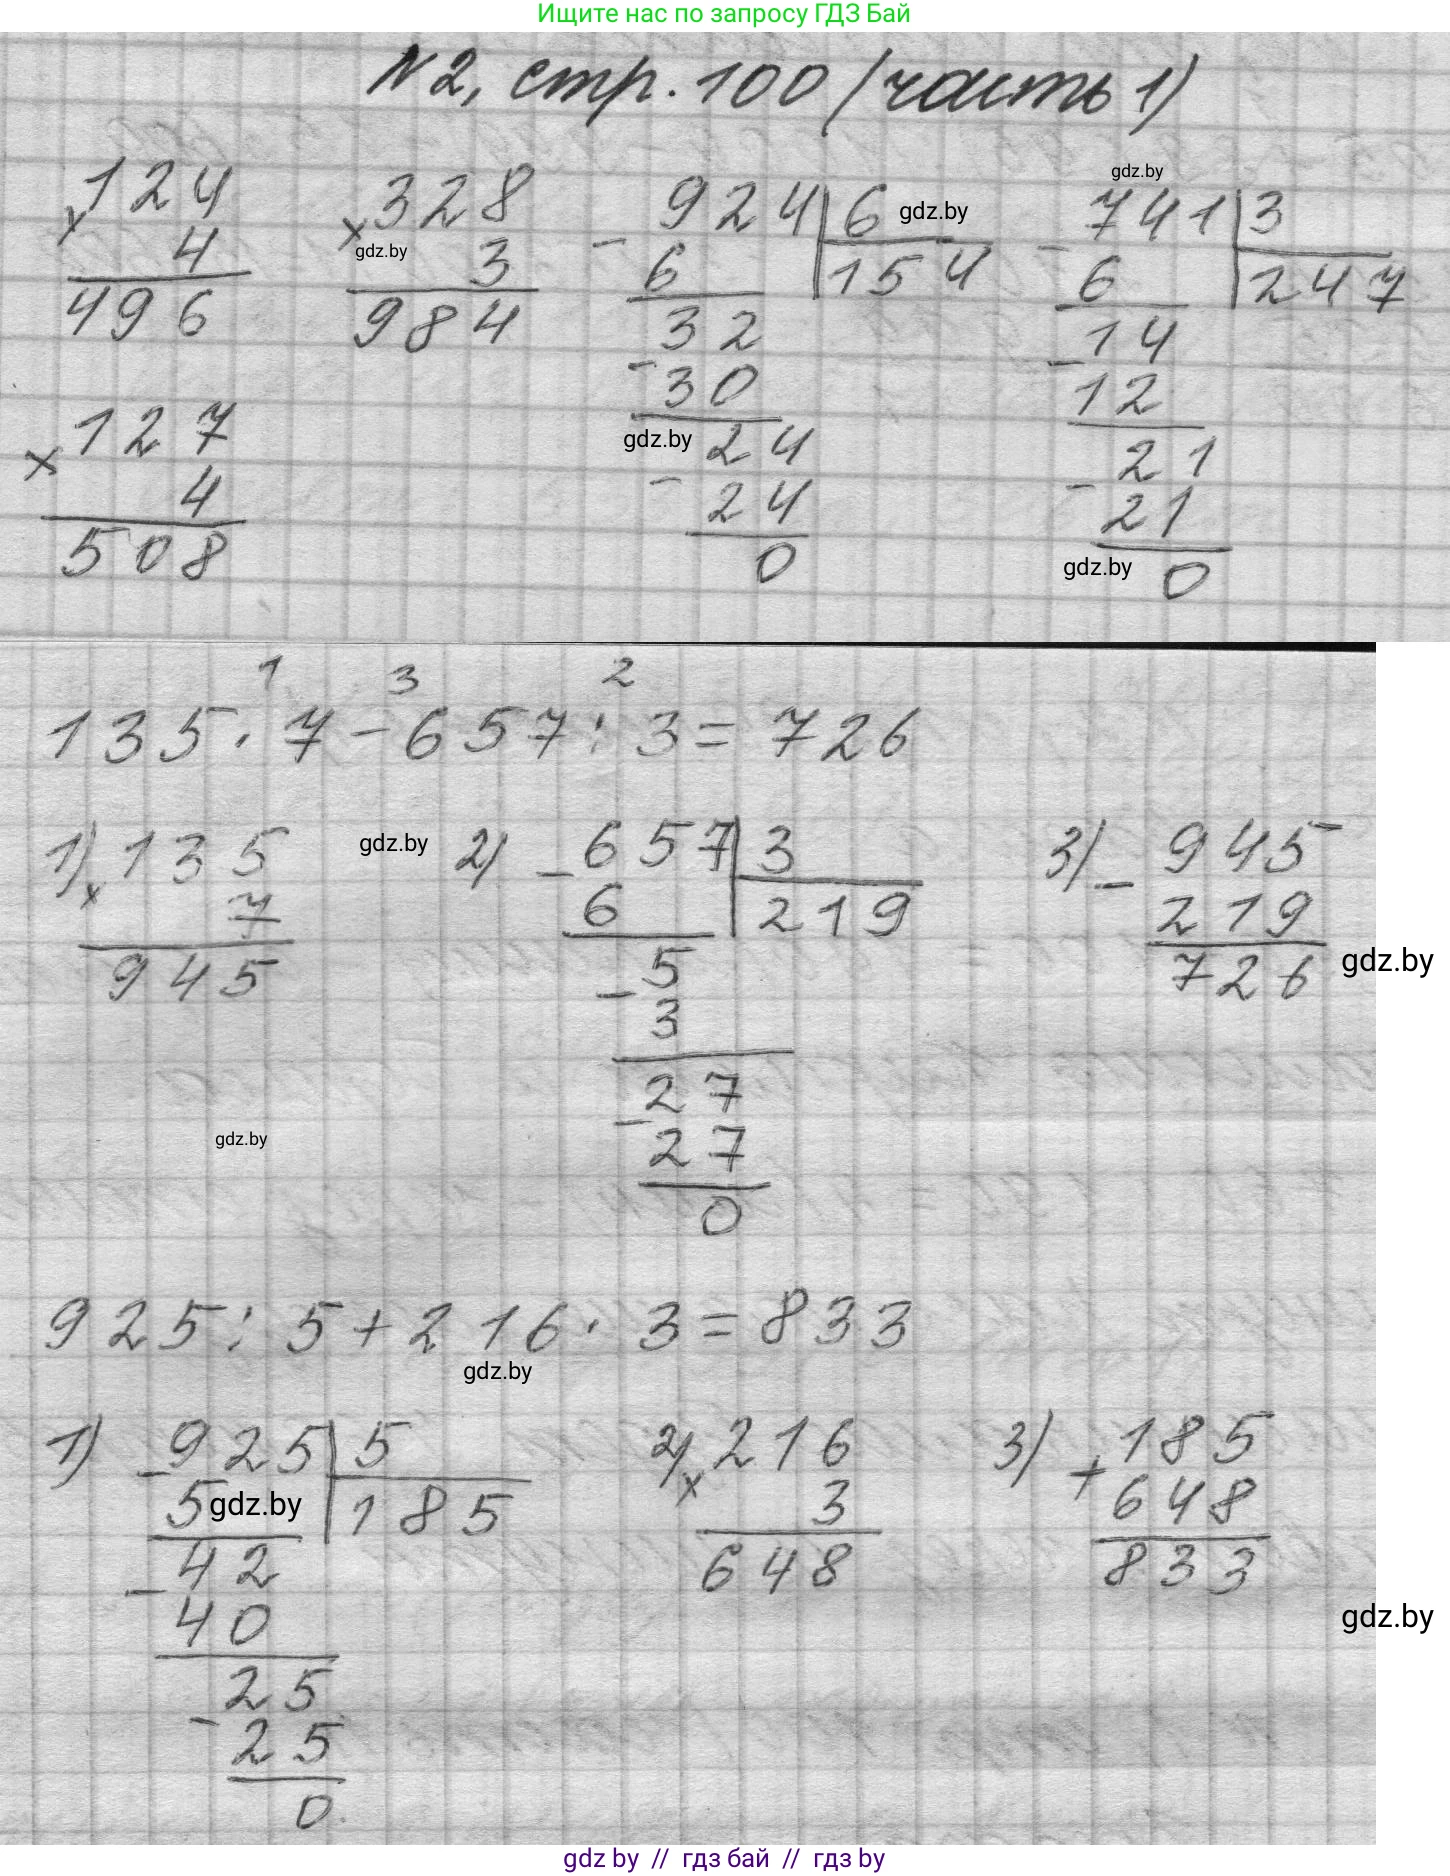 Ищите нас по запросу ГДЗ Бай
N2, стр. 100 (часть 1)
gdz.by
124
x 4
496
328
x 3
gdz.by
984
924 | 6
gdz.by
- 6
154
32
- 30
gdz.by
24
- 24
0
741 | 3
- 6
247
14
- 12
21
- 21
gdz.by
0
127
x 4
508
1 3 2
135 · 7 - 657 : 3 = 726
1) 135
x 7
945
gdz.by
2) - 657 | 3
6
219
5
- 3
27
- 27
0
3) - 945
219
726
gdz.by
gdz.by
925 : 5 + 216 · 3 = 833
gdz.by
1) - 925 | 5
5
gdz.by
185
42
- 40
25
- 25
0
2) 216
x 3
648
3) + 185
648
833
gdz.by
gdz by // гдз бай // гдз by